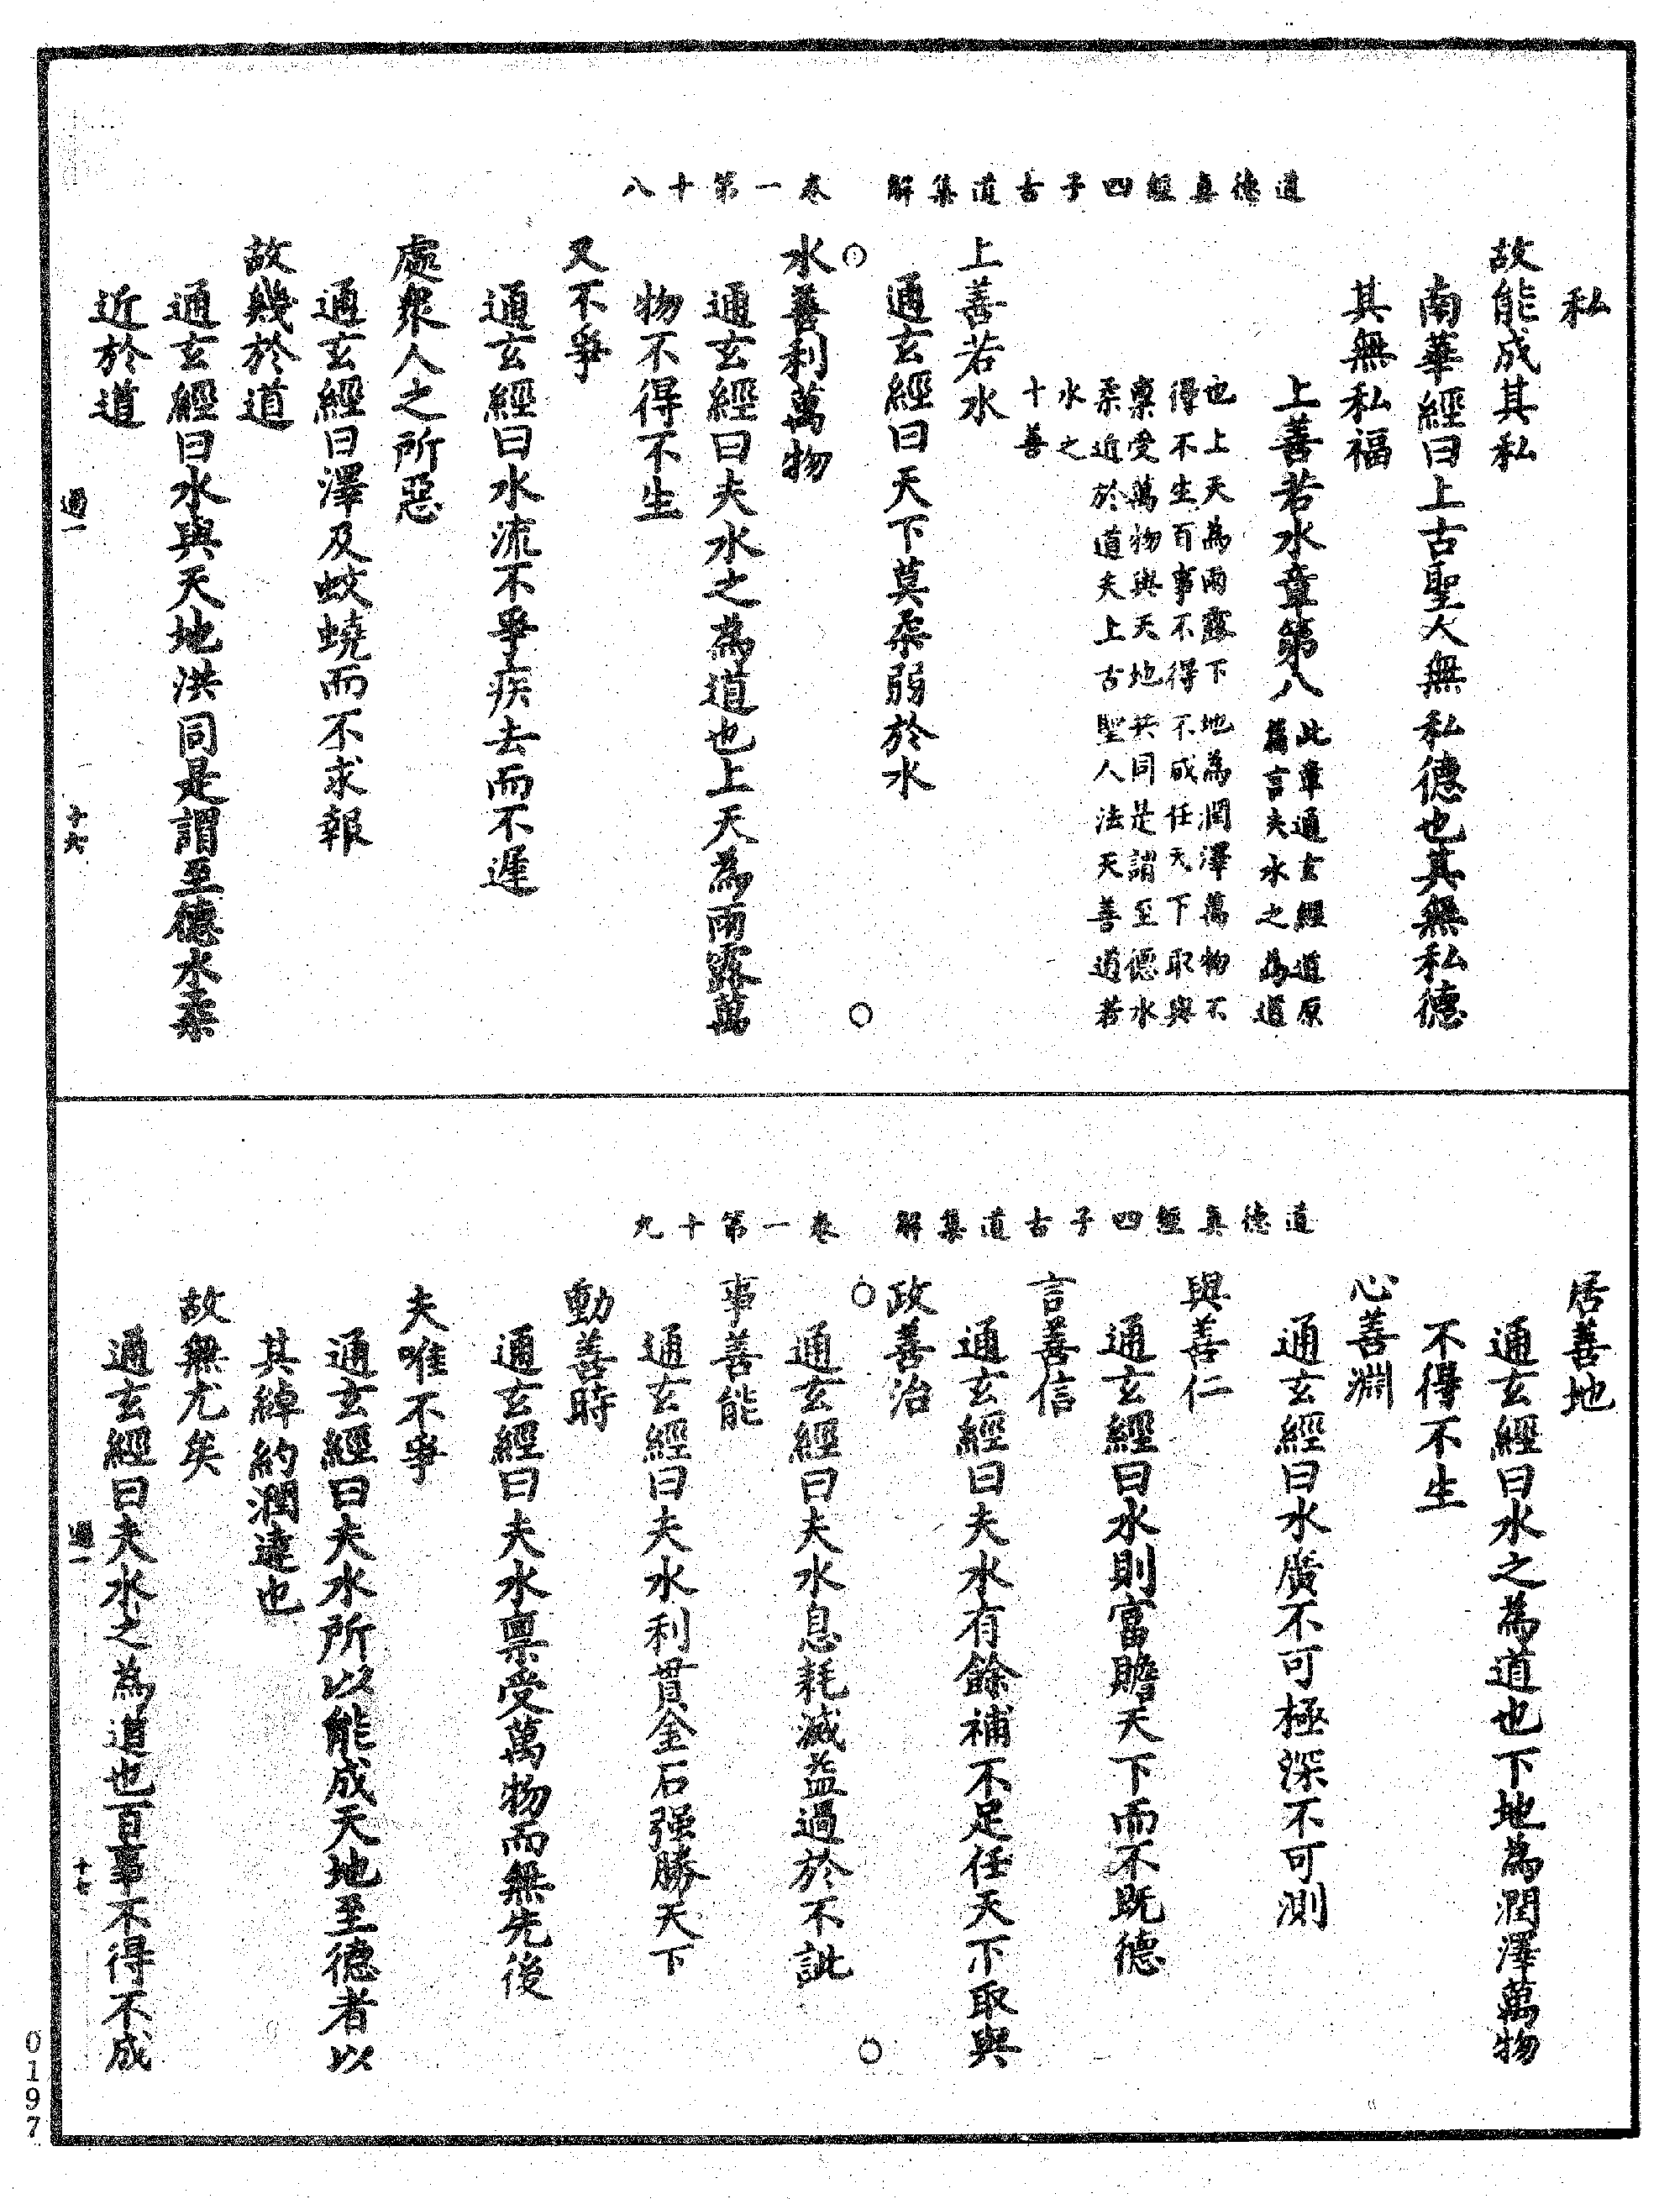 道德真經四子古道集解　卷一第十八
私
故能成其私
南華經曰上古聖人無私德也其無私德
其無私福
上善若水章第八
此章通玄經道原
篇言夫水之為道
也上天為雨露下地為潤澤萬物不
得不生百事不得不成任天下取與
稟受萬物與天地共同是謂至德水
柔近於道夫上古聖人法天善道若
水之
十善
上善若水
通玄經曰天下莫柔弱於水
水善利萬物
通玄經曰夫水之為道也上天為雨露萬
物不得不生
又不爭
通玄經曰水流不爭疾去而不遲
處衆人之所惡
通玄經曰澤及蚑蟯而不求報
故幾於道
通玄經曰水與天地洪同是謂至德水柔
近於道
過一
十六
道德真經四子古道集解　卷一第十九
居善地
通玄經曰水之為道也下地為潤澤萬物
不得不生
心善淵
通玄經曰水廣不可極深不可測
與善仁
通玄經曰水則富贍天下而不既德
言善信
通玄經曰夫水有餘補不足任天下取與
政善治
通玄經曰夫水息耗減益過於不訾
事善能
通玄經曰夫水利貫金石强勝天下
動善時
通玄經曰夫水稟受萬物而無先後
夫唯不爭
通玄經曰夫水所以能成天地至德者以
其綽約潤達也
故無尤矣
通玄經曰夫水之為道也百事不得不成
過一
十七
0197